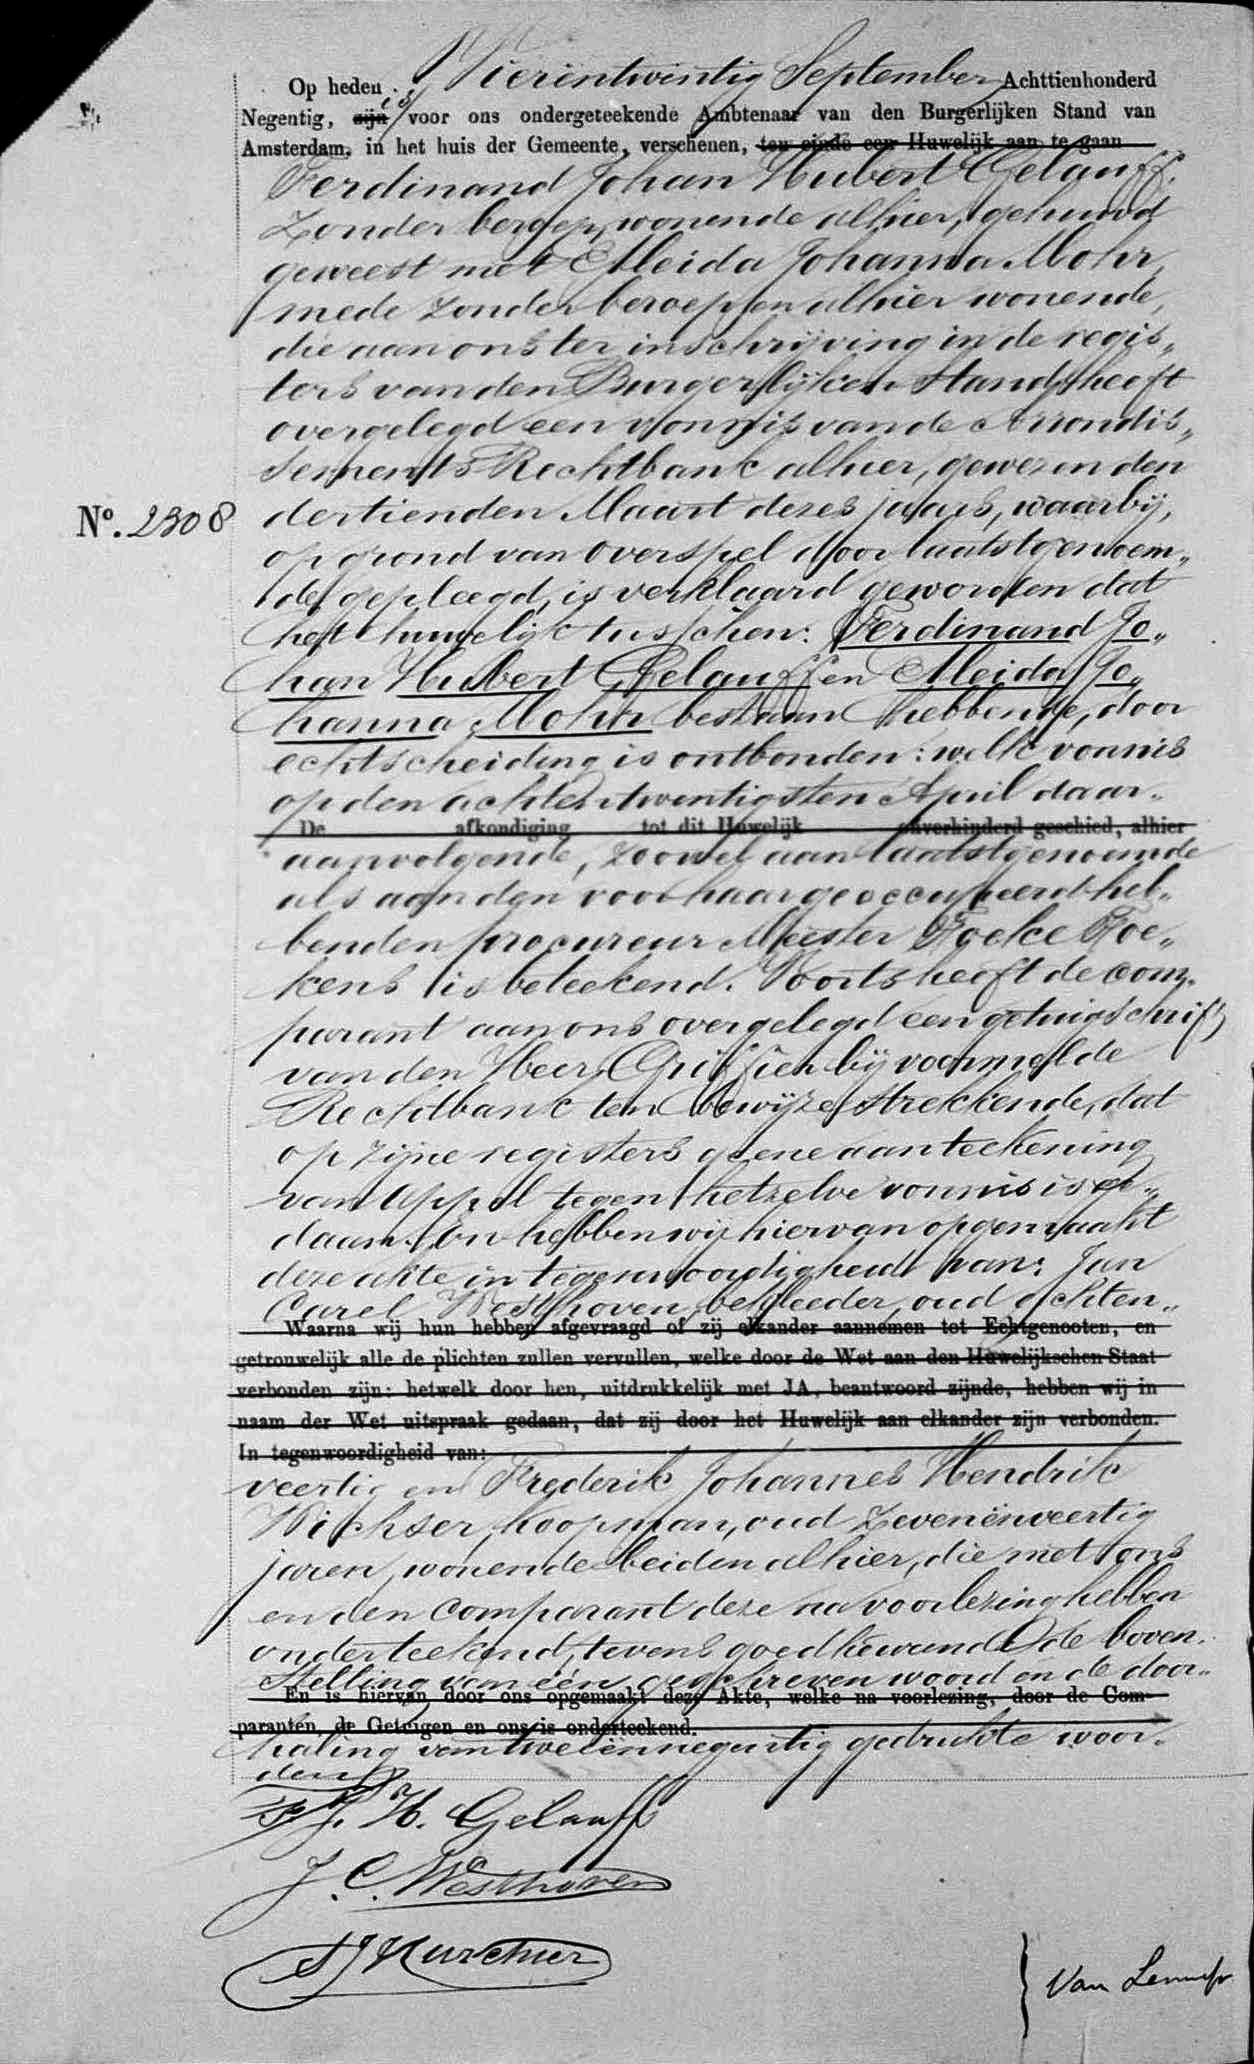 Op heden Vierentwintig September Achttienhonderd
Negentig, zijn is voor ons ondergeteekende Ambtenaar van den Burgerlijken Stand van
Amsterdam, in het huis der Gemeente, verschenen, ten einde een Huwelijk aan te gaan
Ferdinand Johan Hubert Gelauff,
zonder beroep, wonende alhier, gehuwd
geweest met Aleida Johanna Mohr,
mede zonder beroep en alhier wonende,
die aan ons ter inschrijving in de regis„
ters van den Burgerlijken Stand heeft
overgelegd een vonnis van de Arrondis„
sements Rechtbank alhier, gewezen den
No. 2308 dertienden Maart dezes jaars, waarbij,
op grond van overspel door laatstgenoem„
de gepleegd, is verklaard geworden dat
het huwelijk tusschen: Ferdinand Jo„
han Hubert Gelauff en Aleida Jo„
hanna Mohr bestaan hebbende, door
echtscheiding is ontbonden: welk vonnis
op den achtentwintigsten April daar„
De afkondiging tot dit Huwelijk onverhinderd geschied, alhier
aanvolgende, zoowel aan laatstgenoemde
als aan den voor haar geoccupeerd heb„
benden procureur Meester Foeke Foe„
kens is beteekend. Voorts heeft de com„
parant aan ons overgelegd een getuigschrift
van den Heer Griffier bij voormelde
Rechtbank ten bewijze strekkende, dat
op zijne registers geene aanteekening
van Appel tegen hetzelve vonnis is ge„
daan. En hebben wij hiervan opgemaakt
deze akte in tegenwoordigheid van: Jan
Carel Westhoven, bekleeder, oud achten„
Waarna wij hun hebben afgevraagd of zij elkander aannemen tot Echtgenooten, en
getrouwelijk alle de plichten zullen vervullen, welke door de Wet aan den Huwelijkschen Staat
verbonden zijn: hetwelk door hen, uitdrukkelijk met JA, beantwoord zijnde, hebben wij in
naam der Wet uitspraak gedaan, dat zij door het Huwelijk aan elkander zijn verbonden.
In tegenwoordigheid van:
veertig en Frederik Johannes Hendrik
koopman, oud zevenënveertig
jaren, wonende beiden alhier, die met ons
en den comparant deze na voorlezing hebben
onderteekend, tevens goedkeurende de boven„
stelling van één geschreven woord en de door„
En is hiervan door ons opgemaakt deze Akte, welke na voorlezing, door de Com-
paranten, de Getuigen en ons is onderteekend.
haling van tweeënnegentig gedrukte woor„
den
F. J. H. Gelauff
J. C. Westhoven
Van Lennep